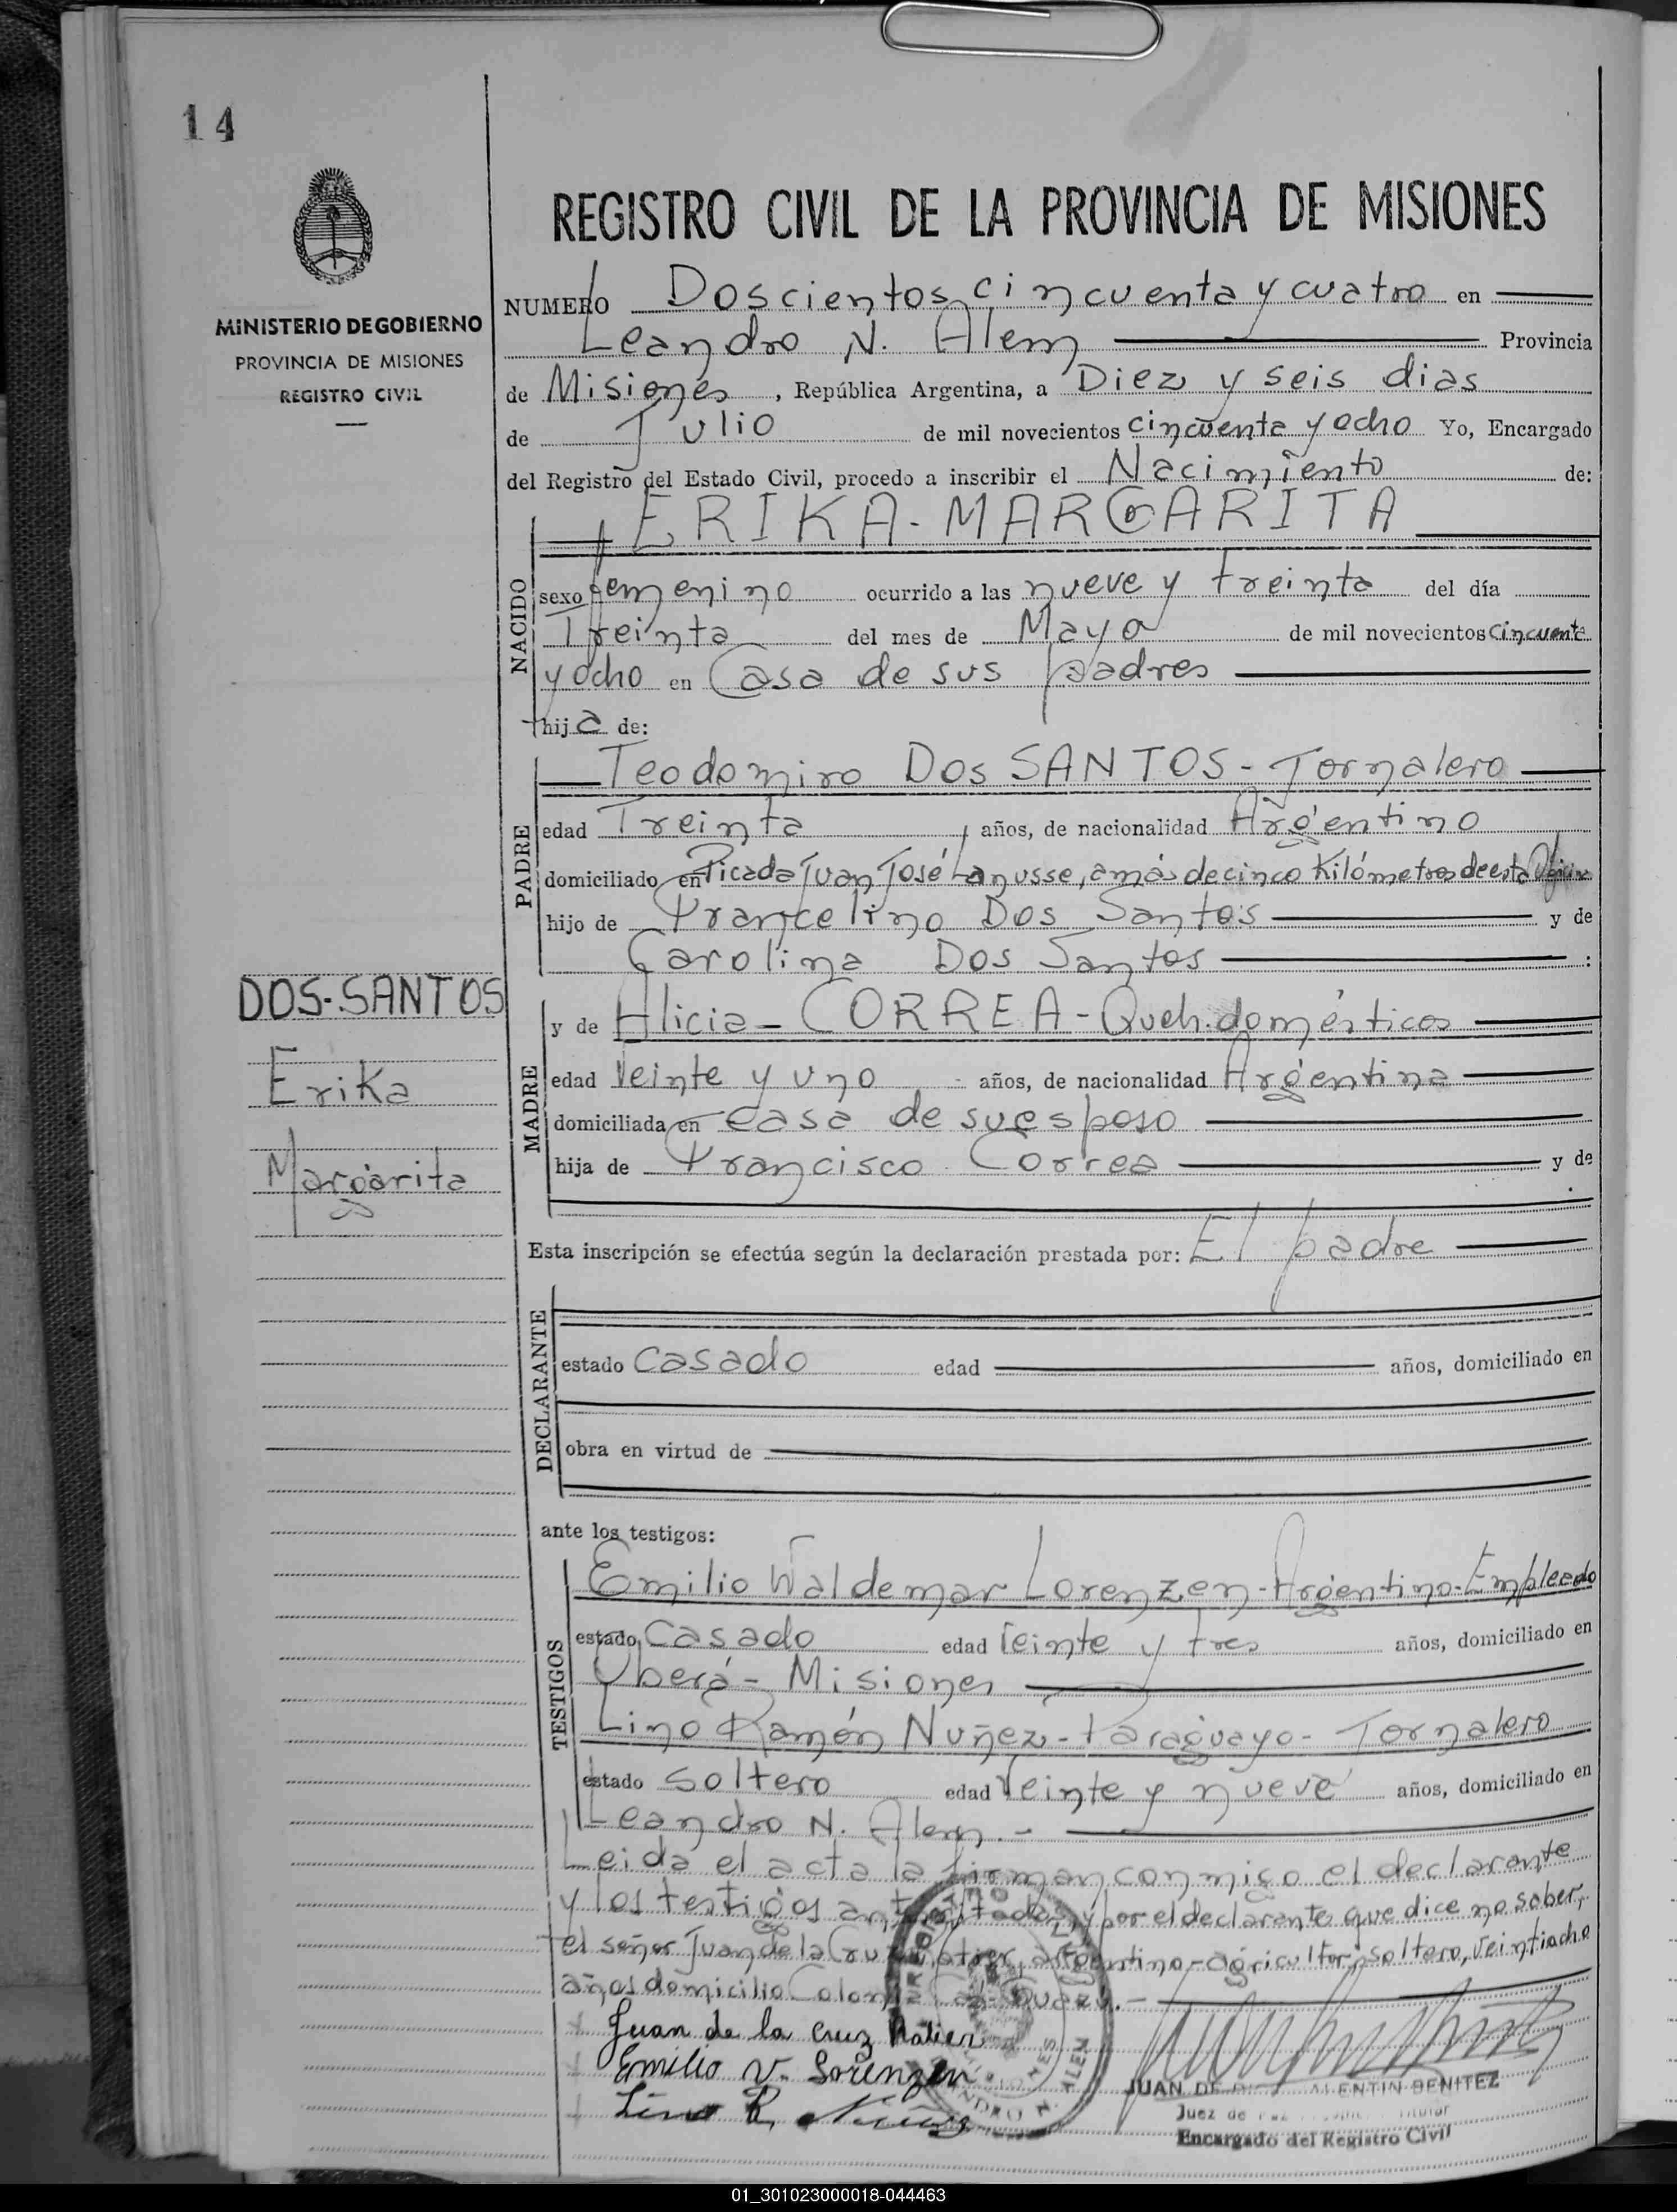 14
REGISTRO CIVIL DE LA PROVINCIA DE MISIONES
MINISTERIO DE GOBIERNO
PROVINCIA DE MISIONES
REGISTRO CIVIL
NUMERO Doscientos cincuenta y cuatro en
Leandro N. Alem Provincia
de Misiones, República Argentina, a Diez y seis dias
de Julio de mil novecientos cincuenta y ocho Yo, Encargado
del Registro del Estado Civil, procedo a inscribir el Nacimiento de:
ERIKA-MARGARITA
NACIDO
sexo femenino ocurrido a las nueve y treinta del día
Treinta del mes de Mayo de mil novecientos cincuenta
y ocho en Casa de sus padres
hija de:
PADRE
Teodomiro Dos SANTOS - Jornalero
edad Treinta años, de nacionalidad Argentino
domiciliado en Picada Juan José Lanusse, a más de cinco Kilómetros de esta Oficina
hijo de Francelino Dos Santos y de
Carolina Dos Santos :
DOS-SANTOS
Erika
Margarita
MADRE
y de Alicia - CORREA - Queh. domésticos
edad Veinte y uno años, de nacionalidad Argentina
domiciliada en casa de su esposo
hija de Francisco Correa y de
Esta inscripción se efectúa según la declaración prestada por: El padre
DECLARANTE
estado casado edad años, domiciliado en
obra en virtud de
ante los testigos:
TESTIGOS
Emilio Waldemar Lorenzen - Argentino - Empleado
estado Casado edad Veinte y tres años, domiciliado en
Oberá - Misiones
Lino Ramón Nuñez - Paraguayo - Jornalero
estado soltero edad Veinte y nueve años, domiciliado en
Leandro N. Alem. -
Leida el acta la firman conmigo el declarante
y los testigos y por el declarante que dice no saber,
el señor Juan de la Cruz argentino - agricultor, soltero, veintiocho
años domicilio Colonia
Juan de la Cruz
Emilio V. Lorenzen
Lino R. Nuñez
JUAN DE VALENTIN BENITEZ
Juez de Paz
Encargado del Registro Civil
01_301023000018-044463